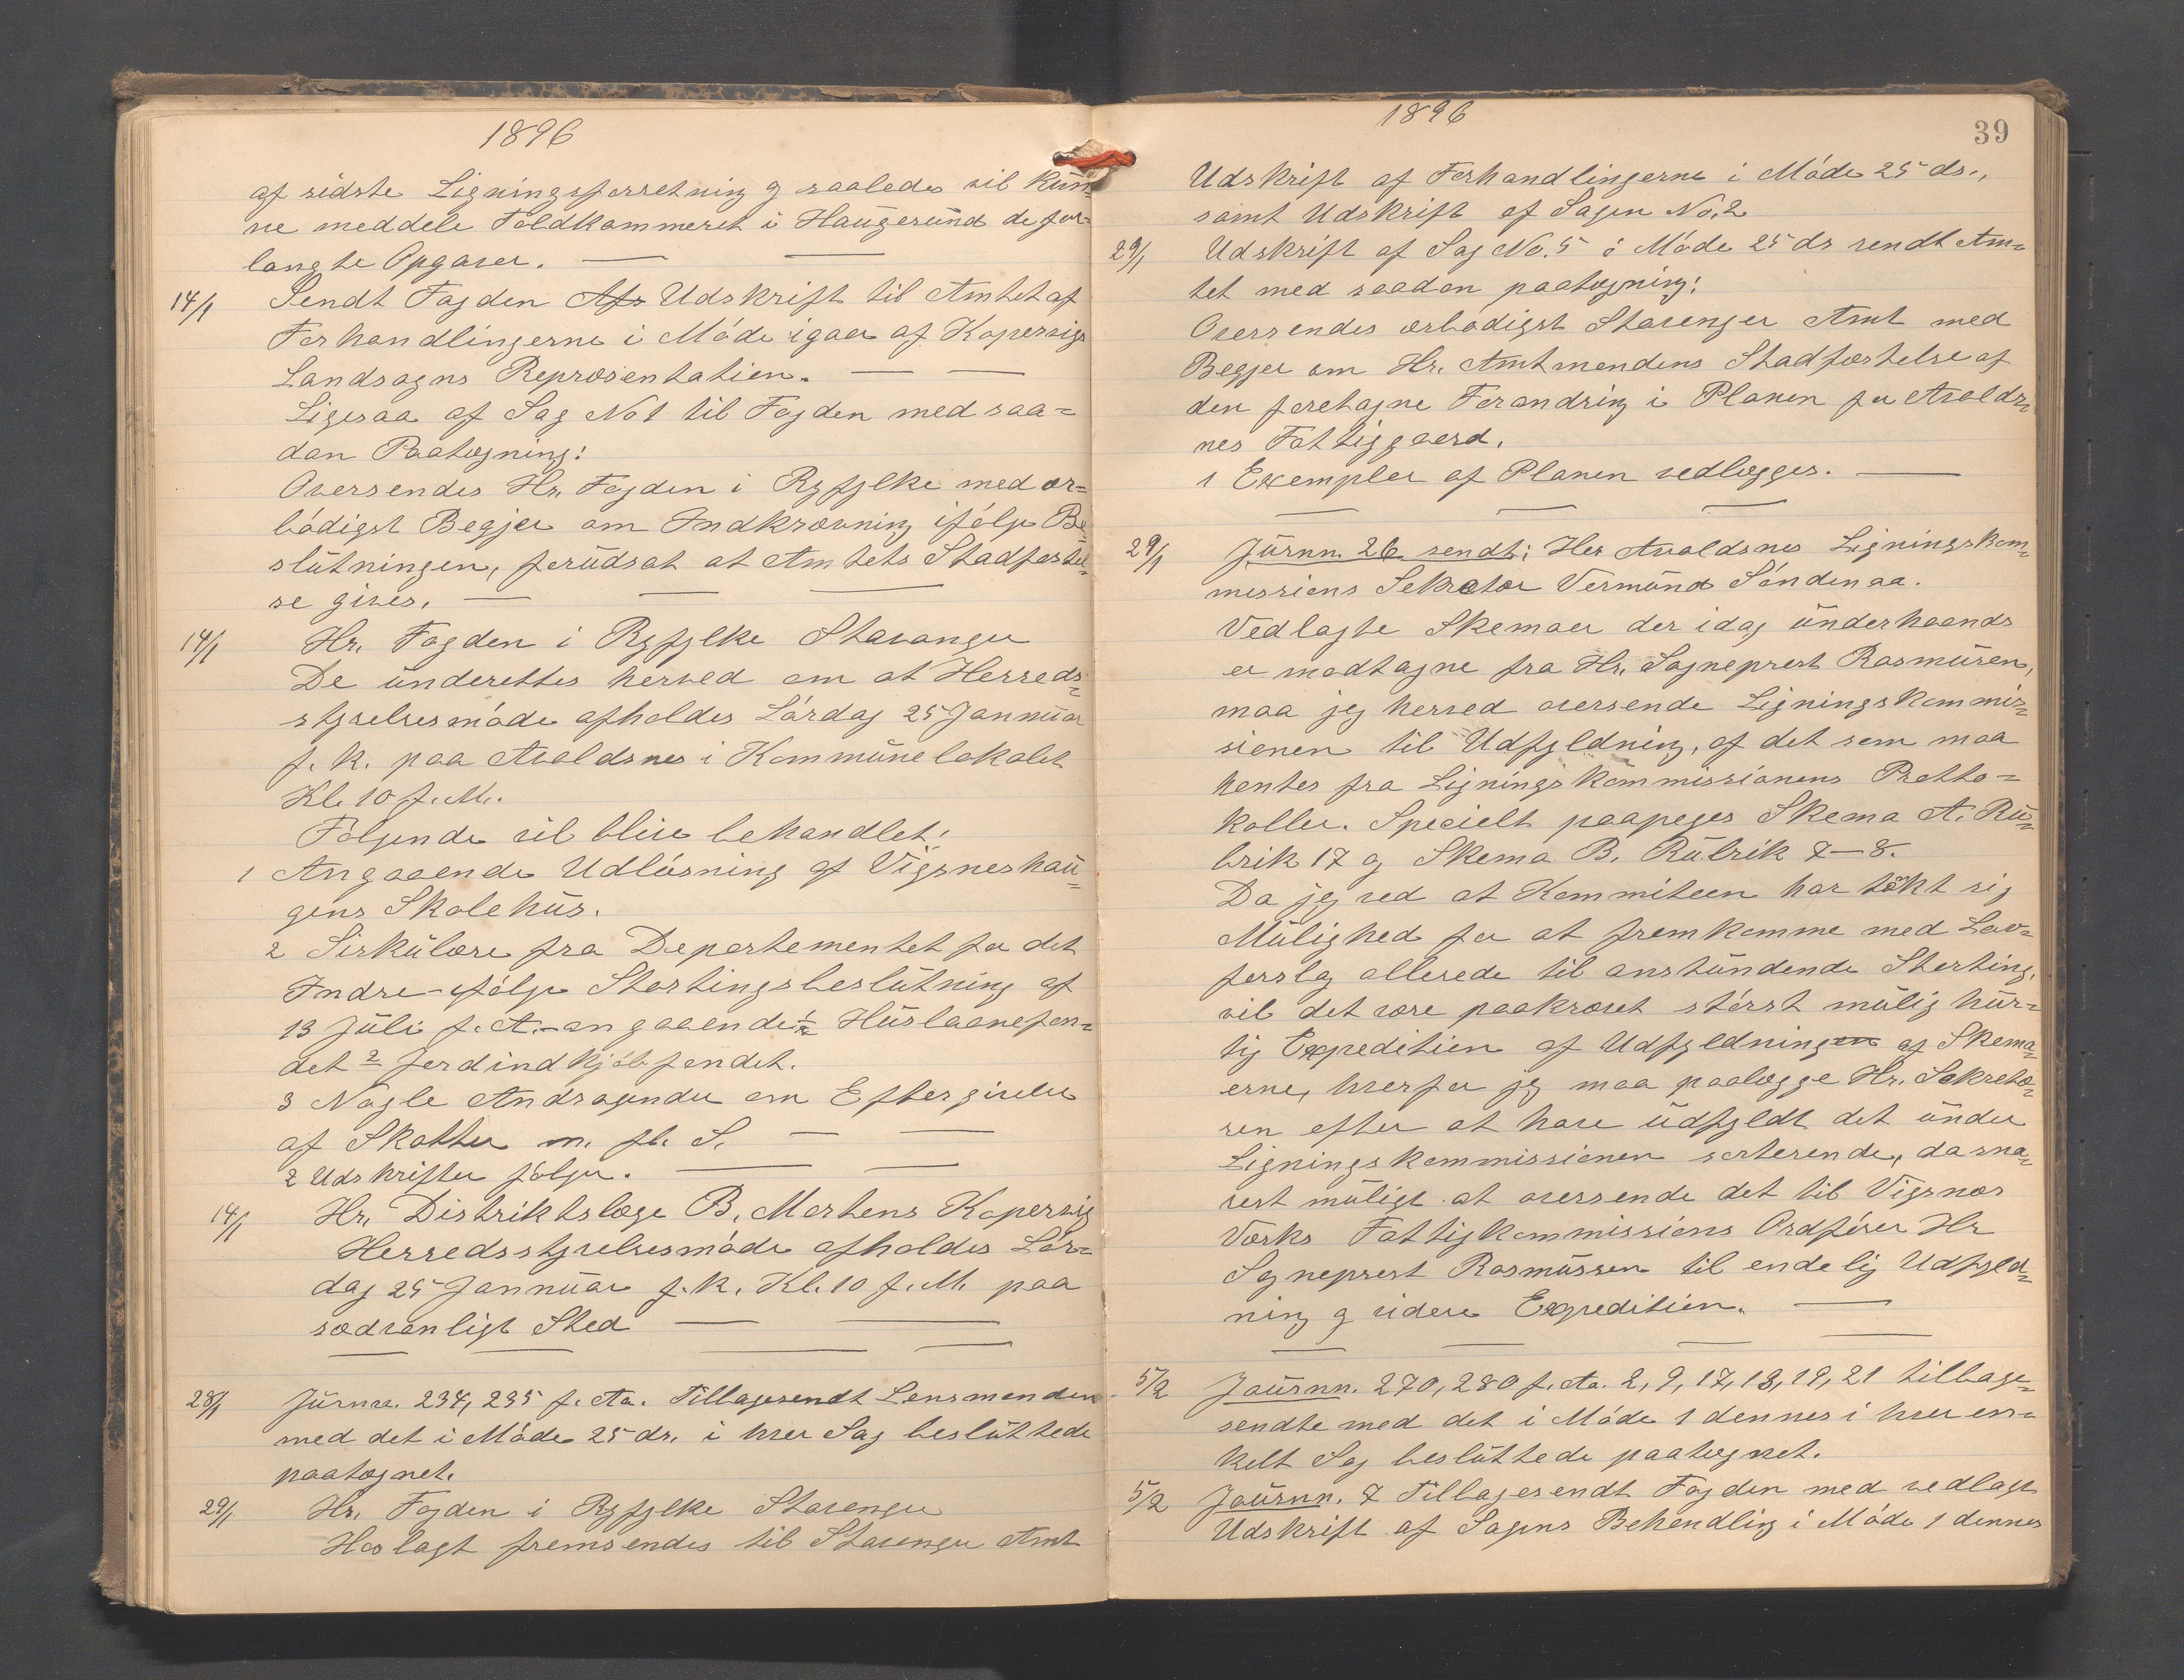 1896
af sidste Ligningsforretning og saaledes vil kun-
ne meddele Toldkammeret i Haugesund de for-
langte Opgaver.
14/1 Sendt Fogden Afs Udskrift til Amtet af
Forhandlingerne i Møde igaar af Kopervigs
Landsogns Repræsentation.
Ligesaa af Sag No 1 til Fogden med saa-
dan Paategning:
Oversendes Hr. Fogden i Ryfylke med ær-
bødigst Begjær om Indkrævning ifølge Be
slutningen, forudsat at Amtets Stadfæstel-
se gives.
14/1 Hr. Fogden i Ryfylke Stavanger
De underettes herved om at Herreds-
styrelsesmøde afholdes Lørdag 25 Jannuar
f. k. paa Avaldsnes i Kommunelokalet
Kl. 10 f. M.
Følgende vil blive behandlet:
1 Angaaende Udløsning af Vigsneshau-
gens Skolehus.
2 Sirkulære fra Departementet for det
Indre ifølge Stortingsbeslutning af
13 Juli f. A. angaaende 1 Huslaanefon-
det 2 Jordindkjøbfondet.
3 Nogle Andragender om Eftergivelse
af Skatter m. fl. S.
2 Udskrifter følger.
14/1 Hr. Distriktslæge B. Mortens Kopervig
Herredsstyrelsesmøde afholdes Lør-
dag 25 Jannuar f. k. Kl. 10 f. M. paa
sædvanligt Sted
28/1 Jurnn. 234, 235 f. Aa. Tilbagesendt Lensmanden
med det i Møde 25 ds. i hver Sag besluttede
paategnet.
29/1 Hr. Fogden i Ryfylke Stavanger
Hoslagt fremsendes til Stavanger Amt
1896
39
Udskrift af Forhandlingerne i Møde 25 ds.,
samt Udskrift af Sagen No. 2
29/1 Udskrift af Sag No. 5 i Møde 25 ds sendt Am-
tet med saadan paategning:
Oversendes ærbødigst Stavanger Amt med
Begjær om Hr. Amtmandens Stadfæstelse af
den foretagne Forandring i Planen for Avalds-
nes Fattiggaard.
1 Exemplar af Planen vedlægges.
29/1 Jurnn. 26 sendt: Her Avaldsnes Ligningskom-
missions Sekretær Vermund Søndenaa.
Vedlagte Skemaer der idag underhaands
er modtagne fra Hr. Sogneprest Rasmusen,
maa jeg herved oversende Ligningskommis-
sionen til Udfyldning, af det som maa
hentes fra Ligningskommissionens Protto-
koller. Specielt paapeges Skema A. Ru-
brik 17 og Skema B. Rubrik 7-8.
Da jeg ved at Kommiteen har tænkt sig
Mulighed for at fremkomme med Lov-
forslag allerede til anstundende Storting,
vil det være paakrævet størst mulig hur-
tig Expedition af Udfyldningen af Skema-
erne, hvorfor jeg maa paalægge Hr. Sekretæ-
ren efter at have udfyldt det under
Ligningskommissionen sorterende, da sna-
rest muligt at oversende det til Vigsnæs
Værks Fattigkommissions Ordfører Hr
Sogneprest Rasmussen til endelig Udfyld-
ning og videre Expedition.
5/2 Jaurnn. 270, 280 f. Aa. 2, 9, 17, 18, 19, 21 tilbage-
sendte med det i Møde 1 dennes i hver en-
kelt Sag besluttede paategnet.
5/2 Jaurnn. 7 Tilbagesendt Fogden med vedlagt
Udskrift af Sagens Behandling i Møde 1 dennes